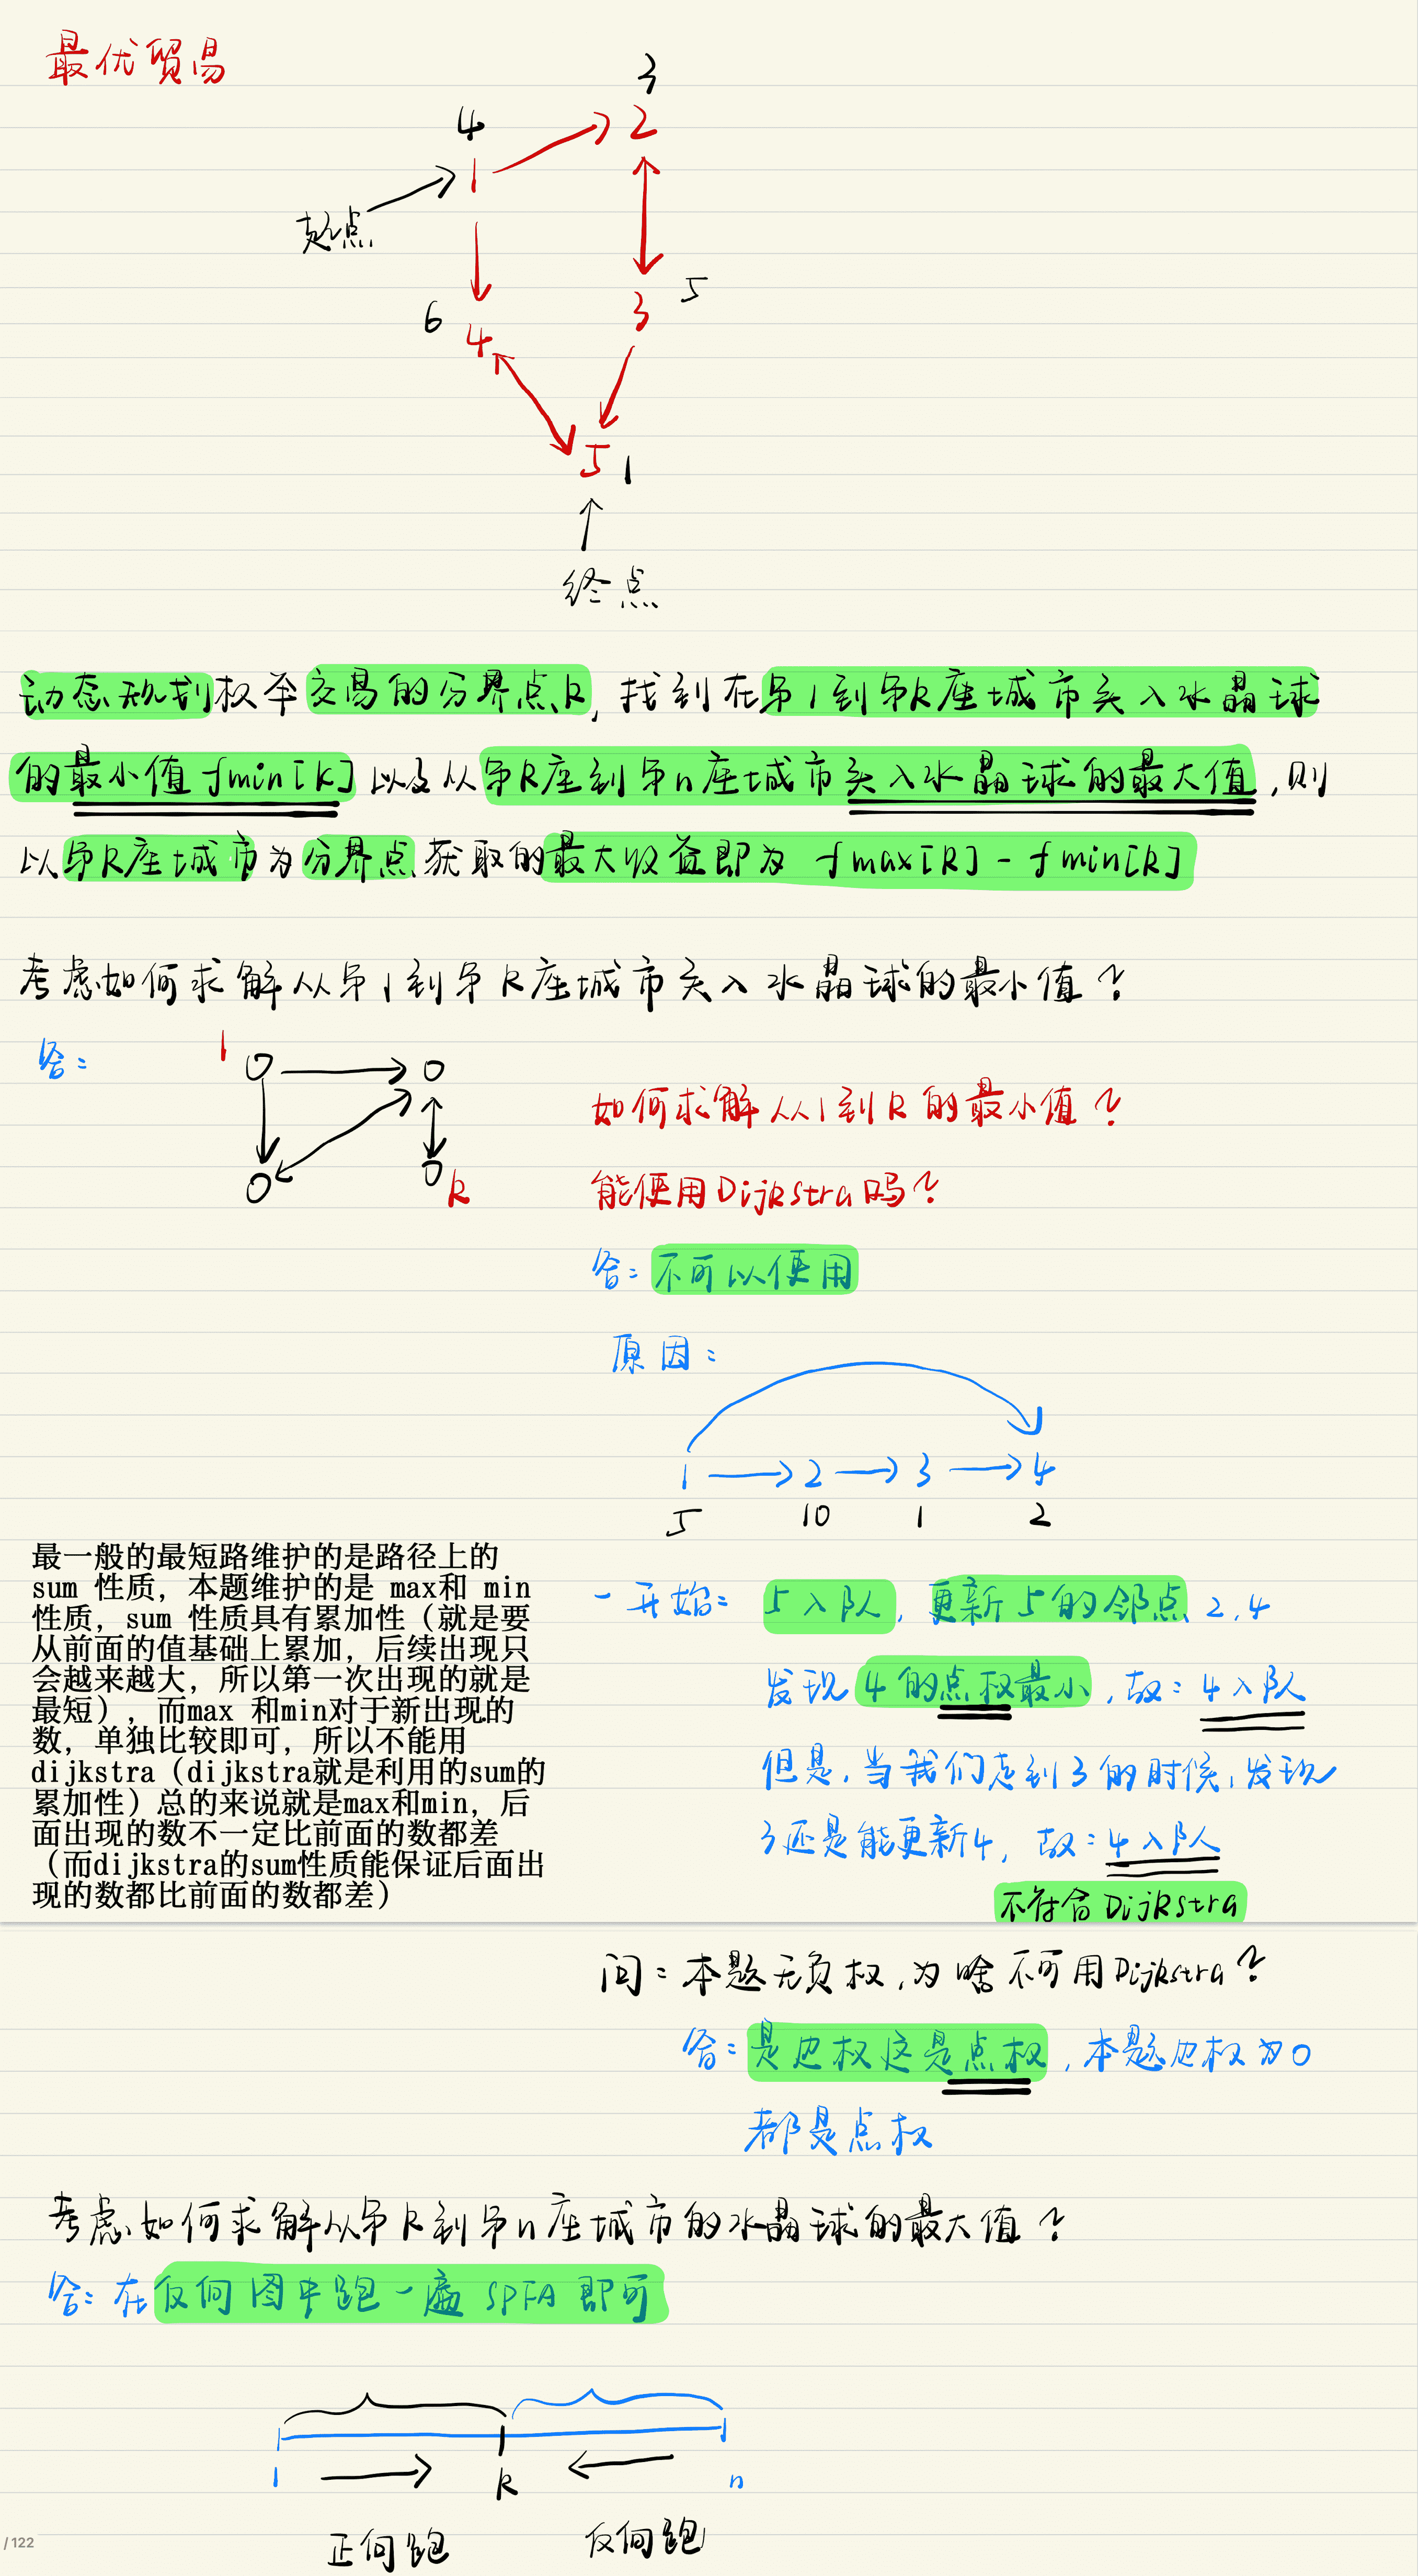 最优贸易
3
4
2
1
起点
5
6
3
4
5 1
终点
动态规划枚举交易的分界点k, 找到在第1到第k座城市买入水晶球
的最小值 fmin[k] 以及从第k座到第n座城市买入水晶球的最大值,则
以第k座城市为分界点获取的最大收益即为 fmax[k] - fmin[k]
考虑如何求解从第1到第k座城市买入水晶球的最小值?
答:
1
k
如何求解从1到k的最小值?
能使用Dijkstra吗?
答: 不可以使用
原因:
1 2 3 4
5 10 1 2
最一般的最短路维护的是路径上的
sum 性质, 本题维护的是 max和 min
性质, sum 性质具有累加性 (就是要
从前面的值基础上累加, 后续出现只
会越来越大, 所以第一次出现的就是
最短) , 而max 和min对于新出现的
数, 单独比较即可, 所以不能用
dijkstra (dijkstra就是利用的sum的
累加性) 总的来说就是max和min, 后
面出现的数不一定比前面的数都差
(而dijkstra的sum性质能保证后面出
现的数都比前面的数都差)
一开始: 5入队, 更新5的邻点 2,4
发现4的点权最小, 故: 4入队
但是, 当我们走到3的时候, 发现
3还是能更新4, 故: 4入队
不符合Dijkstra
问: 本题无负权, 为啥不可用Dijkstra?
答: 是边权还是点权, 本题边权为0
都是点权
考虑如何求解从第k到第n座城市的水晶球的最大值?
答: 在反向图中跑一遍SPFA即可
1 k n
正向跑 反向跑
/ 122